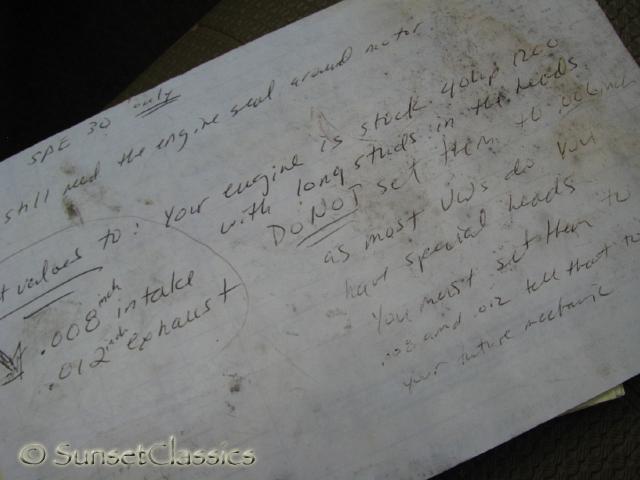 SAE 30 only
still need the engine seal around motor
t values to:
.008 inch intake
.012 inch exhaust
Your engine is stock 40hp 1200
with long studs in the heads
DO NOT set them to .006 inch
as most VWs do you
have special heads
You must set them to
.008 and .012 tell that to
your future mechanic
© SunsetClassics